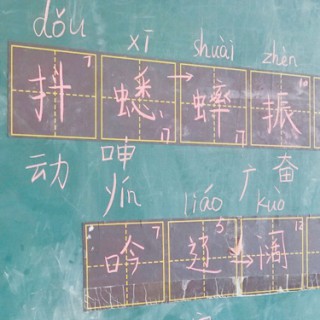 dǒu xī shuài zhèn
抖 蟋 蟀 振
动 呻 奋
yín liáo 广 kuò
吟 辽 阔